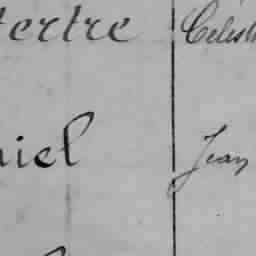 tertre Célest
niel Jean